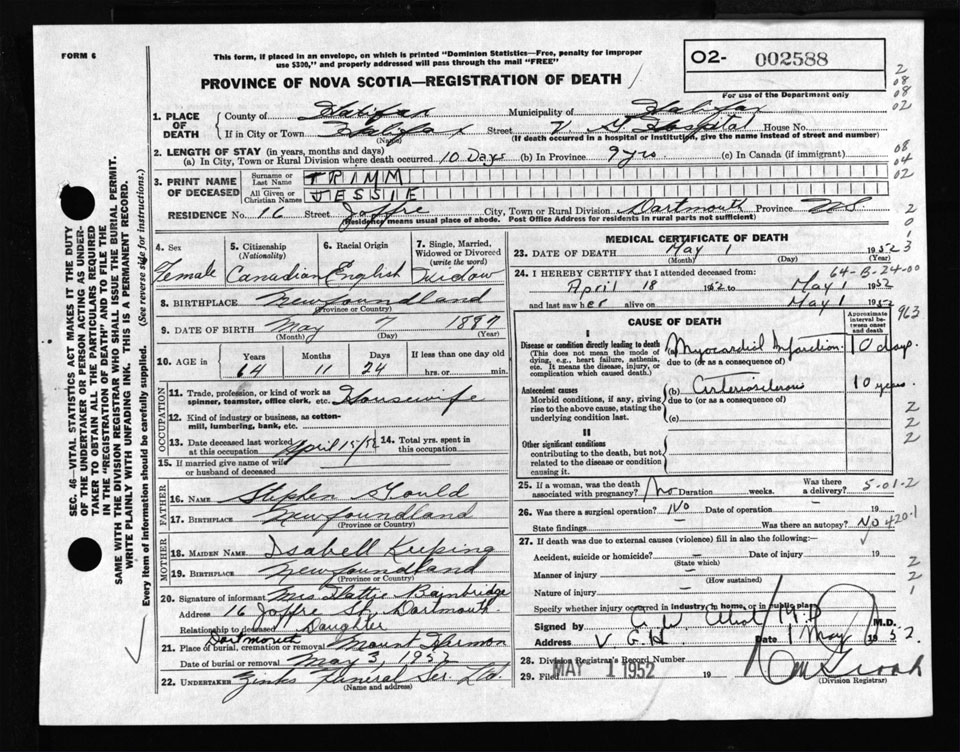 FORM 6
This form, if placed in an envelope, on which is printed "Dominion Statistics—Free, penalty for improper
use $300," and properly addressed will pass through the mail "FREE"
PROVINCE OF NOVA SCOTIA—REGISTRATION OF DEATH
O2- 002588
For use of the Department only
1. PLACE OF DEATH
County of Halifax Municipality of Halifax
If in City or Town Halifax Street V G Hospital House No.
(Name) (If death occurred in a hospital or Institution, give the name instead of street and number)
2. LENGTH OF STAY (in years, months and days)
(a) In City, Town or Rural Division where death occurred 10 Days (b) In Province 9 yrs. (c) In Canada (if immigrant)
3. PRINT NAME OF DECEASED
Surname or Last Name TRIMM
All Given or Christian Names JESSIE
RESIDENCE No. 16 Street Joffre City, Town or Rural Division Dartmouth Province NS
(Residence means usual place of abode. Post Office Address for residents in rural parts not sufficient)
4. Sex Female
5. Citizenship (Nationality) Canadian
6. Racial Origin English
7. Single, Married, Widowed or Divorced (write the word) Widow
8. BIRTHPLACE Newfoundland
(Province or Country)
9. DATE OF BIRTH May 7 1897
(Month) (Day) (Year)
10. AGE in Years 64 Months 11 Days 24 If less than one day old hrs. or min.
OCCUPATION
11. Trade, profession, or kind of work as spinner, teamster, office clerk, etc. Housewife
12. Kind of industry or business, as cotton-mill, lumbering, bank, etc.
13. Date deceased last worked at this occupation April 15/52 14. Total yrs. spent in this occupation
15. If married give name of wife or husband of deceased
FATHER
16. NAME Stephen Gould
17. BIRTHPLACE Newfoundland
(Province or Country)
MOTHER
18. MAIDEN NAME Isabell Keeping
19. BIRTHPLACE Newfoundland
(Province or Country)
20. Signature of informant Mrs Hattie Bainbridge
Address 16 Joffre St, Dartmouth.
Relationship to deceased Daughter
Dartmouth
21. Place of burial, cremation or removal Mount Hermon
Date of burial or removal May 3, 1952
22. UNDERTAKER Zinks Funeral Ser. Ltd.
(Name and address)
MEDICAL CERTIFICATE OF DEATH
23. DATE OF DEATH May 1 1952
(Month) (Day) (Year)
64-B-24-00
24. I HEREBY CERTIFY that I attended deceased from:
April 18 1952 to May 1 1952
and last saw her alive on May 1 1952
963
CAUSE OF DEATH
Approximate interval between onset and death
I
Disease or condition directly leading to death (a) Myocardial Infarction 10 days
(This does not mean the mode of dying, e.g., heart failure, asthenia, etc. It means the disease, injury, or complication which caused death.)
due to (or as a consequence of)
Antecedent causes (b) Arteriosclerosis 10 years.
Morbid conditions, if any, giving rise to the above cause, stating the underlying condition last.
due to (or as a consequence of)
(c)
II
Other significant conditions
contributing to the death, but not related to the disease or condition causing it.
25. If a woman, was the death associated with pregnancy? No Duration weeks. Was there a delivery?
5-01-2
26. Was there a surgical operation? No Date of operation 19
State findings Was there an autopsy? No
420.1
27. If death was due to external causes (violence) fill in also the following:
Accident, suicide or homicide? Date of injury 19
(State which)
Manner of injury
(How sustained)
Nature of injury
Specify whether injury occurred in industry, in home, or in public place
Signed by M.D.
Address V G H Date 1 May 1952.
28. Division Registrar's Record Number
29. Filed MAY 1 1952 19
(Division Registrar)
SEC. 46—VITAL STATISTICS ACT MAKES IT THE DUTY
OF THE UNDERTAKER OR PERSON ACTING AS UNDER-
TAKER TO OBTAIN ALL THE PARTICULARS REQUIRED
IN THE "REGISTRATION OF DEATH" AND TO FILE THE
SAME WITH THE DIVISION REGISTRAR WHO SHALL ISSUE THE BURIAL PERMIT.
WRITE PLAINLY WITH UNFADING INK. THIS IS A PERMANENT RECORD.
Every item of information should be carefully supplied. (See reverse side for instructions.)